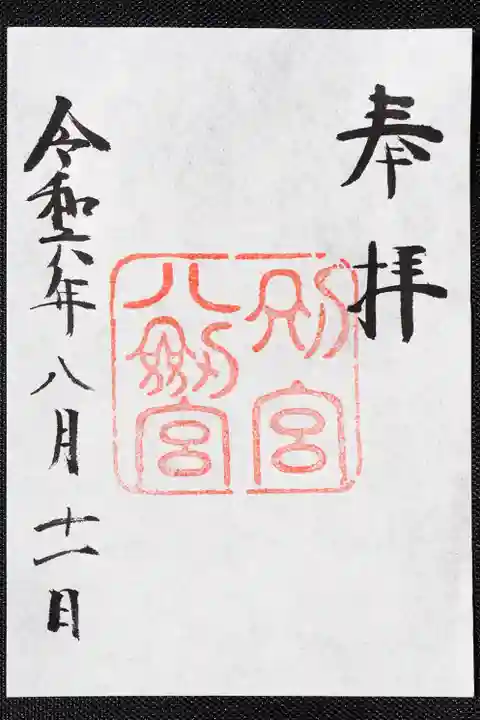 奉拝
別宮
八剱宮
令和六年八月十一日